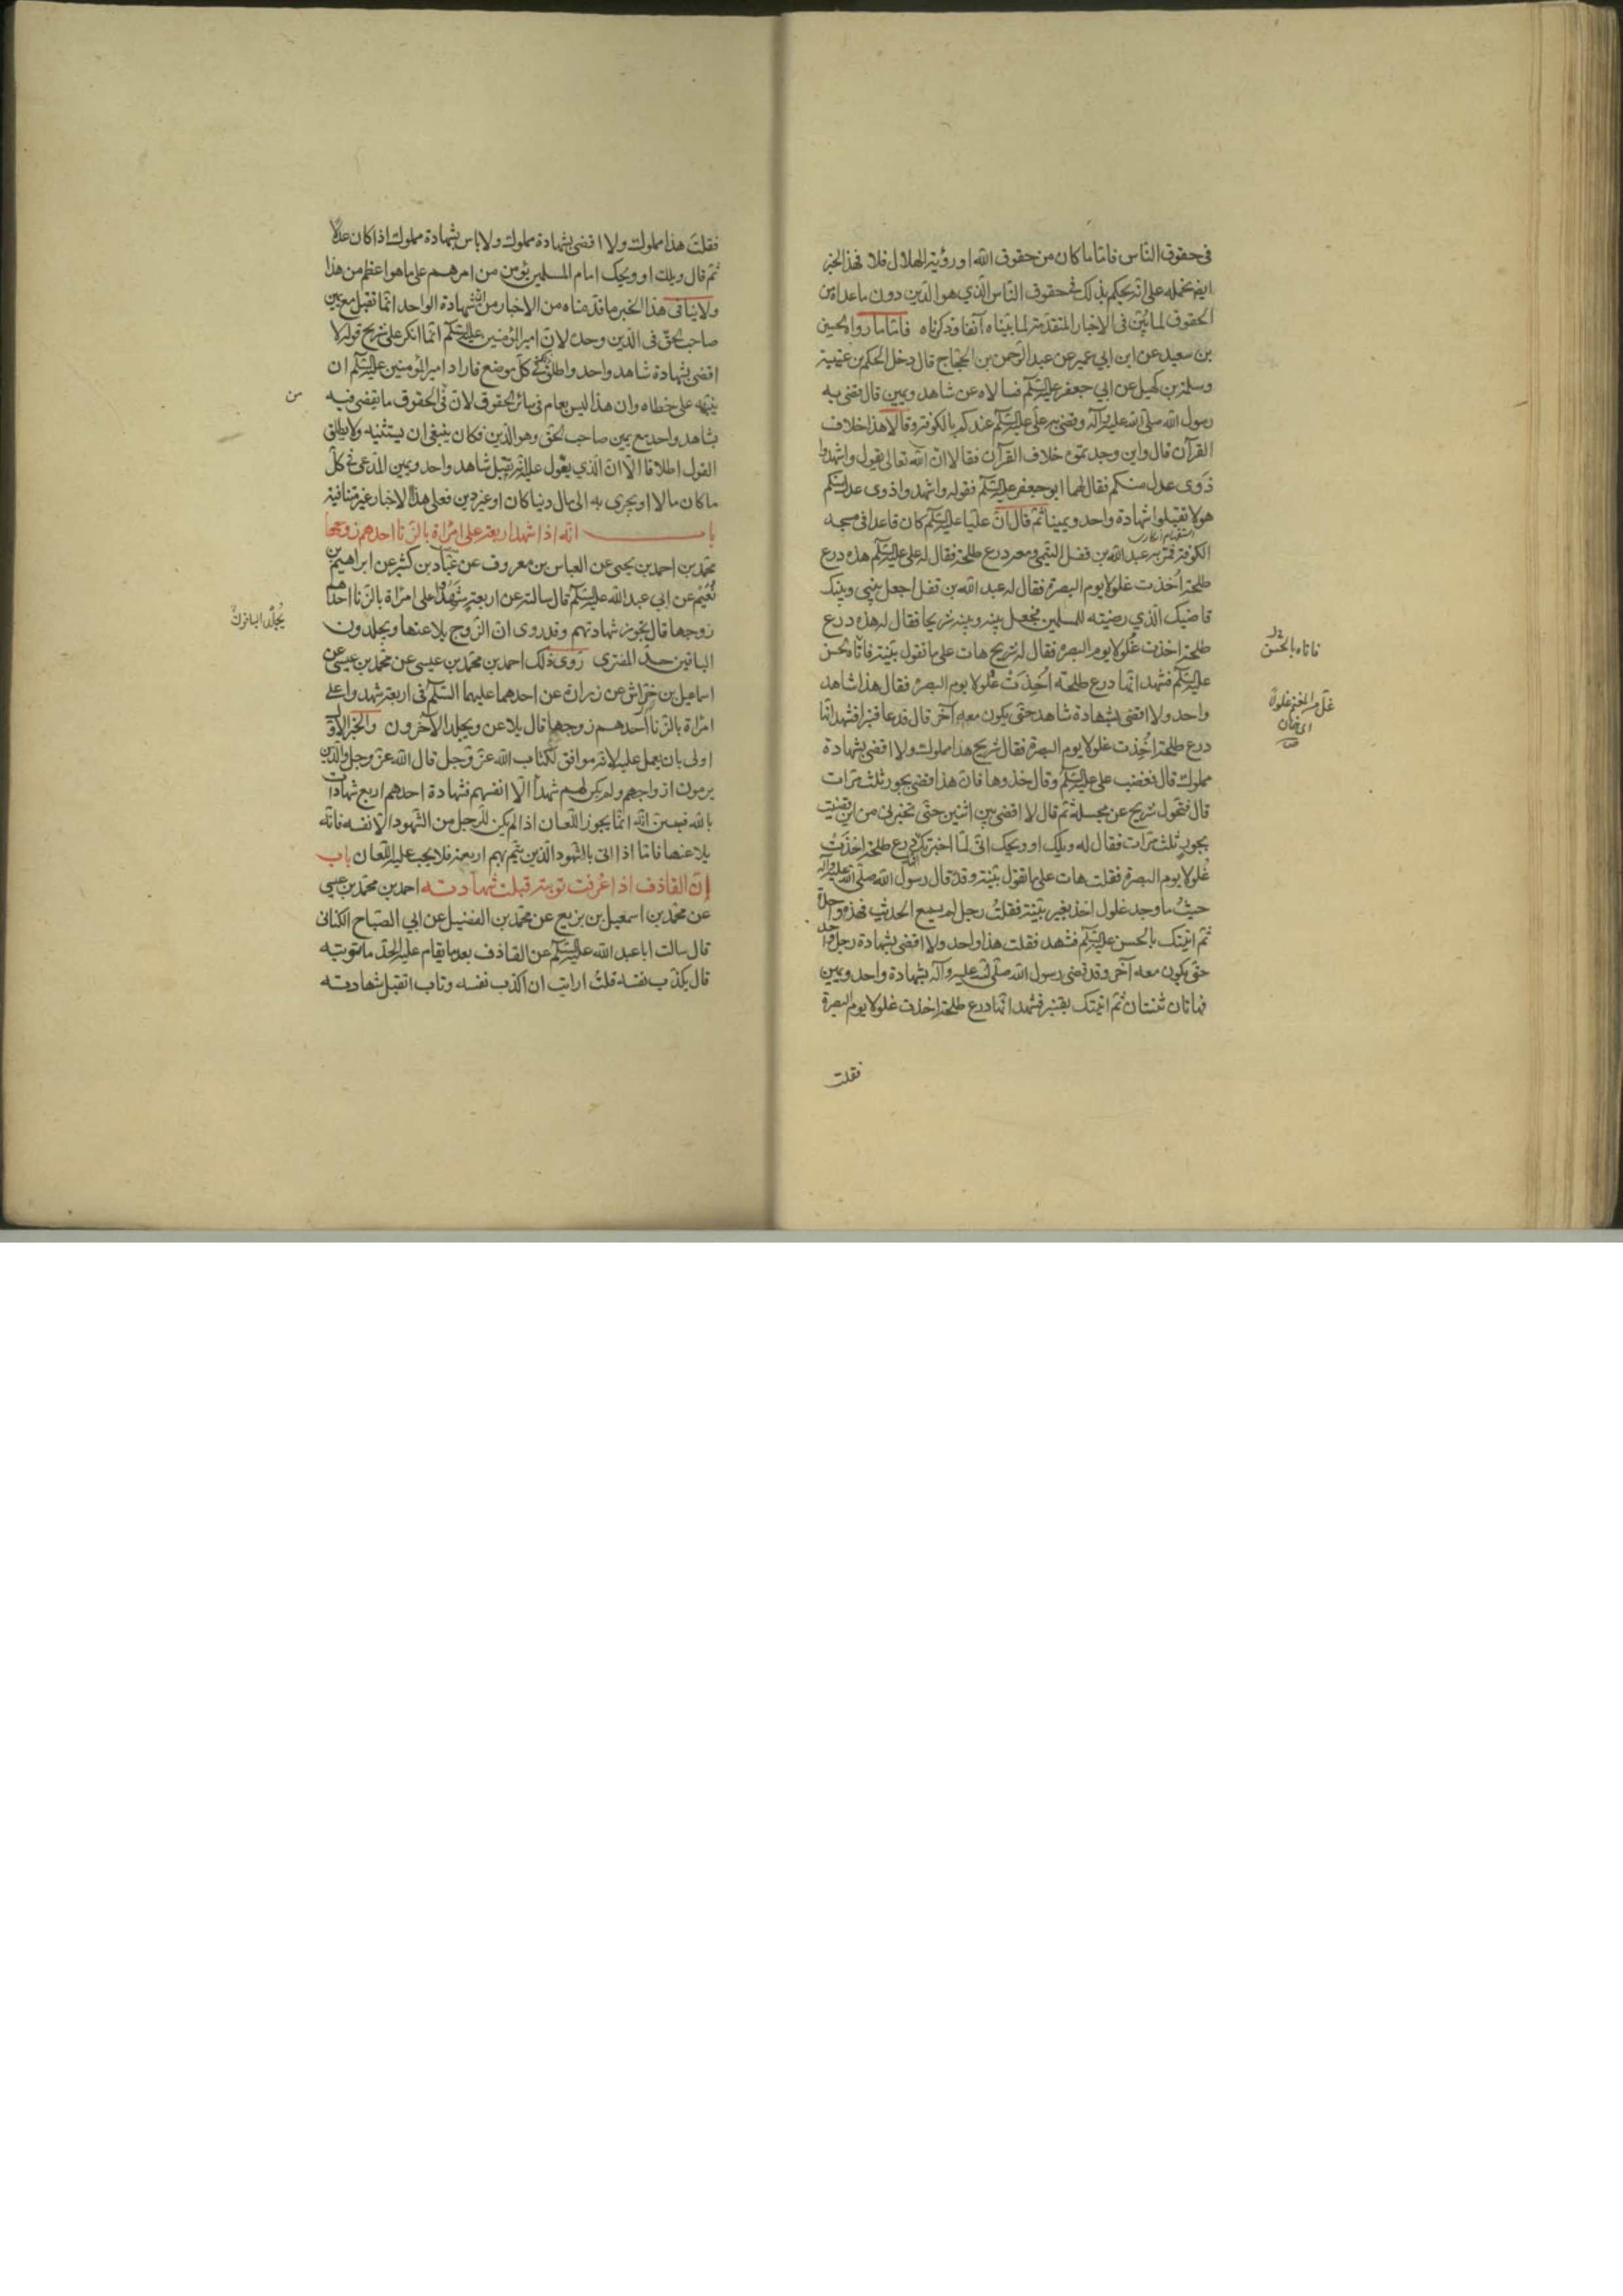 فى حقوق النّاس فامّا ما كان من حقوق الله او رؤية الهلال فلا فهذا الخبر
ايضا نحمله على انّه يحكم بذلك فى حقوق الناس الّذي هو الدّين دون ما عداه من
الحقوق لما بُيّن فى الاخبار المتقدّمة لما بيّناه آنفا وذكرناه فامّا ما رواه الحسين
بن سعيد عن ابن ابي عمير عن عبد الرّحمن بن الحجّاج قال دخل الحكم بن عتيبة
وسلمة بن كهيل عن ابي جعفر عليه السّلم فسالاه عن شاهد ويمين قال قضى به
رسول الله صلّى الله عليه وآله وقضى به علىّ عليه السّلم عندكم بالكوفة وقالا هذا خلاف
القرآن قال واين وجدتموه خلاف القرآن فقالا انّ الله تعالى يقول واشهدوا
ذَوى عدل منكم فقال لهما ابو جعفر عليه السّلم فقوله واشهدوا ذوى عدل منكم
هو لا تقبلوا شهادة واحد ويمينا ثمّ قال انّ عليّا عليه السّلم كان قاعدا فى مسجد
استفهام انكارى
الكوفة فمرّ به عبد الله بن قفل التيمّى ومعه درع طلحة فقال له على عليه السّلم هذه درع
طلحة اُخذت غلولا يوم البصرة فقال له عبد الله بن قفل اجعل بينى وبينك
قاضيك الّذي رضيته للمسلمين فجعل بينه وبينه شريحا فقال له هذه درع
طلحة اخذت غُلولا يوم البصرة فقال له شريح هات على ما تقول بيّنة فاتاه بالحسن
عليه السّلم فشهد انّها درع طلحة اُخِذَتْ غُلولا يوم البصرة فقال هذا شاهد
واحد ولا اقضى بشهادة شاهد حتّى يكون معه آخر قال فدعا قنبرا فشهد انّها
درع طلحة اُخِذت غلولا يوم البصرة فقال شريح هذا مملوك ولا اقضى بشهادة
مملوك قال فغضب على عليه السّلم وقال خذوها فانّ هذا قضى بجور ثلث مرّات
قال فتحوّل شريح عن مجلسه ثمّ قال لا اقضى بين اثنين حتّى تخبرنى من اين قضيت
بجور ثلث مرّات فقال له ويلك او ويحك انّى لمّا اخبرتك انّها درع طلحة اخذَتْ
غُلولا يوم البصرة فقلت هات على ما تقول بيّنة وقد قال رسول الله صلّى الله عليه وآله
حيثُ ما وجد غلول اخذ بغير بيّنة فقلتُ رجل لم يسمع الحديث فهذه واحدة
ثمّ اتيتك بالحسن عليه السّلم فشهد فقلت هذا واحد ولا اقضى بشهادة رجل واحد
حتّى يكون معه آخر وقد قضى رسول الله صلّى الله عليه وآله بشهادة واحد ويمين
فهاتان ثنتان ثمّ اتيتك بقنبر فشهد انّها درع طلحة اخذت غلولا يوم البصرة
فقلت
فاتاه بالحسن
غلّ من المغنم غلولا
اى خان
فقلتَ هذا مملوك ولا اقضى بشهادة مملوك ولا باس بشهادة مملوك اذا كان عدلا
ثمّ قال ويلك او ويحك امام المسلمين يؤمن من امرهم على ما هو اعظم من هذا
ولا ينافى هذا الخبر ما قدّمناه من الاخبار من انّ شهادة الواحد انّما تقبل مع يمين
صاحب الحقّ فى الدّين وحده لانّ امير المؤمنين عليه السّلم انّما انكر على شريح قوله لا
اقضى بشهادة شاهد واحد واطلق فى كلّ موضع فاراد امير المؤمنين عليه السّلم ان
ينبّهه على خطاه وان هذا ليس بعام فى سائر الحقوق لانّ فى الحقوق ما يقضى فيه
بشاهد واحد مع يمين صاحب الحقّ وهو الدّين فكان ينبغى ان يستثنيه ولا يطلق
القول اطلاقا الّا انّ الّذي يعوّل عليه انّه تقبل شاهد واحد ويمين المدّعى فى كلّ
ما كان مالا او يجرى به الى مال دينا كان او غير دين فعلى هذا الاخبار غير متنافية
باب انّه اذا شهد اربعة على امرأة بالزّنا احدهم زوجها
محمّد بن احمد بن يحيى عن العباس بن معروف عن عبّاد بن كثير عن ابراهيم بن
نُعَيْم عن ابي عبد الله عليه السّلم قال سالته عن اربعة شَهِدُوا على امرأة بالزّنا احدهم
زوجها قال تجوز شهادتهم وقد روى انّ الزّوج يلاعنها ويجلدون
الباقين حدّ المفترى رَوى ذلك احمد بن محمّد بن عيسى عن محمّد بن عيسى عن
اسماعيل بن خرّاش عن زرارة عن احدهما عليهما السّلم فى اربعة شهدوا على
امرأة بالزّنا احدهم زوجها قال يلاعن ويجلد الآخرون والخبر الاوّل
اولى بان يعمل عليه لانّه موافق لكتاب الله عزّ وجلّ قال الله عزّ وجلّ والّذين
يرمون ازواجهم ولم يكن لهم شهداء الّا انفسهم فشهادة احدهم اربع شهادات
بالله فبيّن انّه انّما يجوز اللّعان اذا لم يكن للرّجل من الشّهود الّا نفسه فانّه
يلاعنها فامّا اذا اتى بالشّهود الّذين يتمّ بهم اربعة فلا يجب عليه اللّعان باب
إنّ القاذف اذا عُرفت توبته قبلت شهادته احمد بن محمّد بن عيسى
عن محمّد بن اسمعيل بن بزيع عن محمّد بن الفضيل عن ابي الصّباح الكنانى
قال سالت ابا عبد الله عليه السّلم عن القاذف بعد ما يقام عليه الحدّ ما توبته
قال يكذّب نفسه قلتُ ارايت ان اكذب نفسه وتاب اتقبل شهادته
من